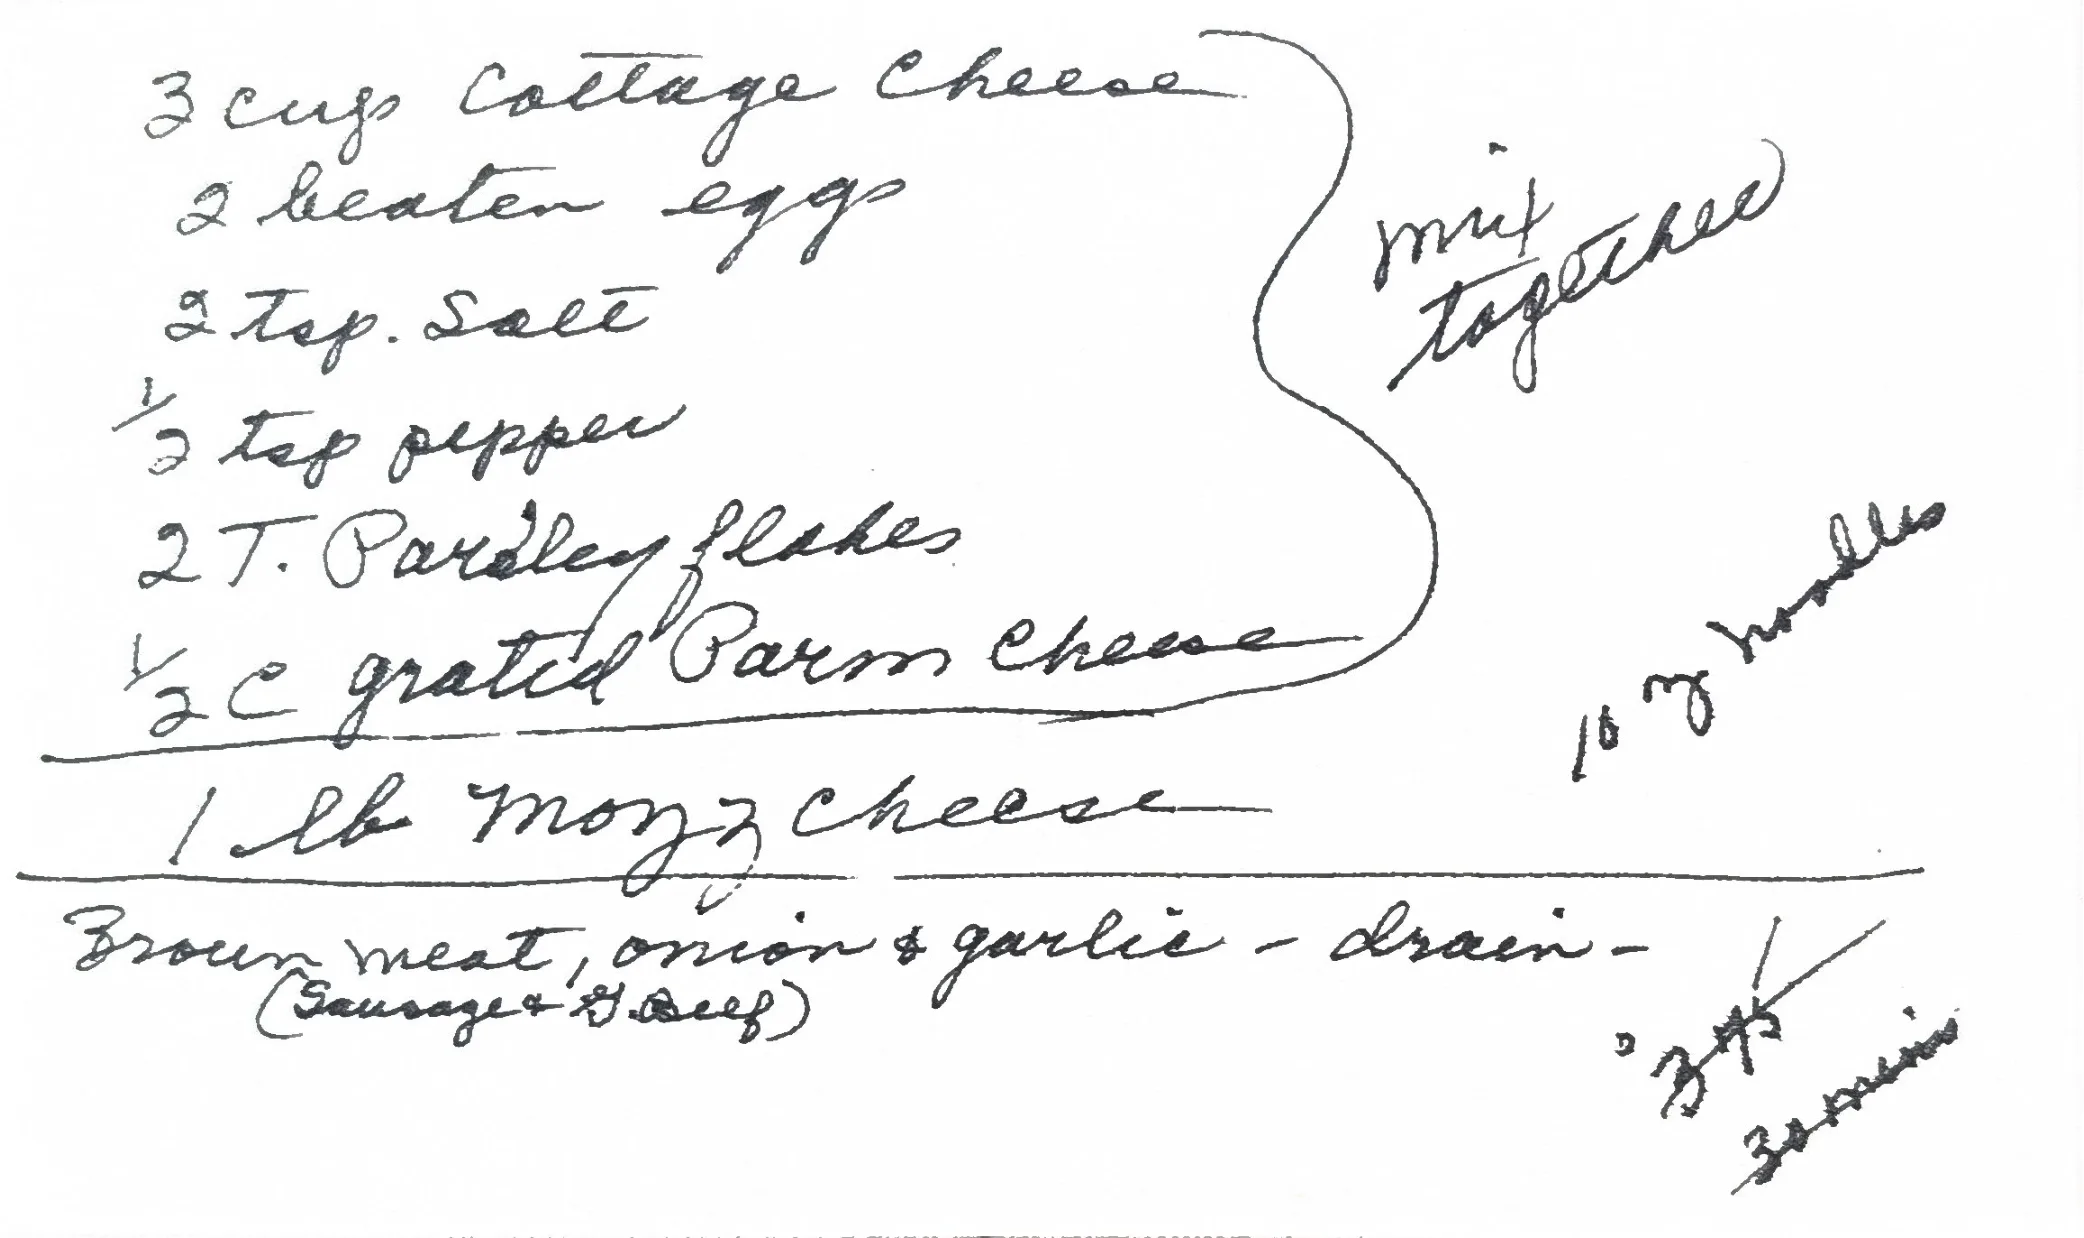 3 cups Cottage Cheese
2 beaten eggs
2 tsp. Salt
1/2 tsp pepper
2 T. Parsley flakes
1/2 C grated Parm Cheese
mix
together
10 oz noodles
1 lb Mozz cheese
Brown meat, onion & garlic - drain -
(Sausage & G. Beef)
30 mins